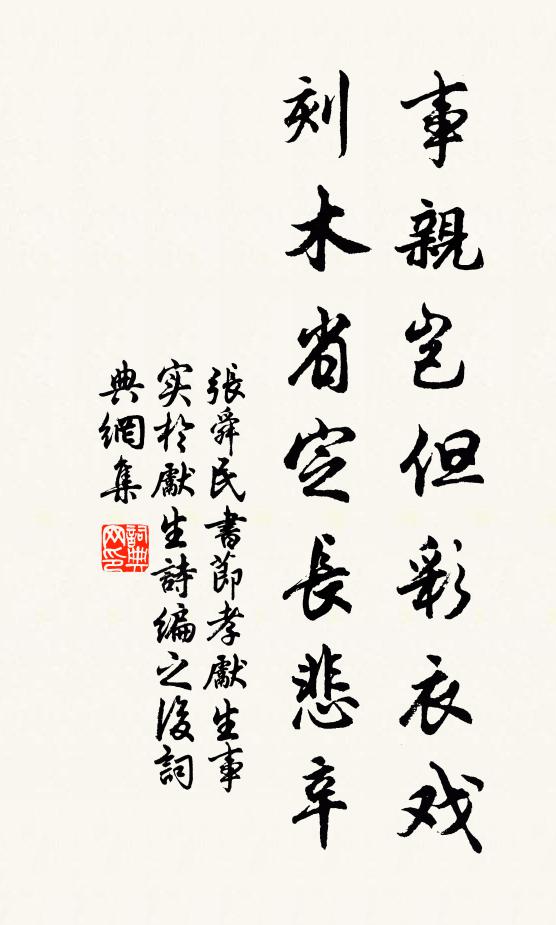 事親岂但彩衣戏
刻木省定長悲辛
張舜民書節孝獻生事
实於獻生詩编之後詞
典網集
詞典
网印